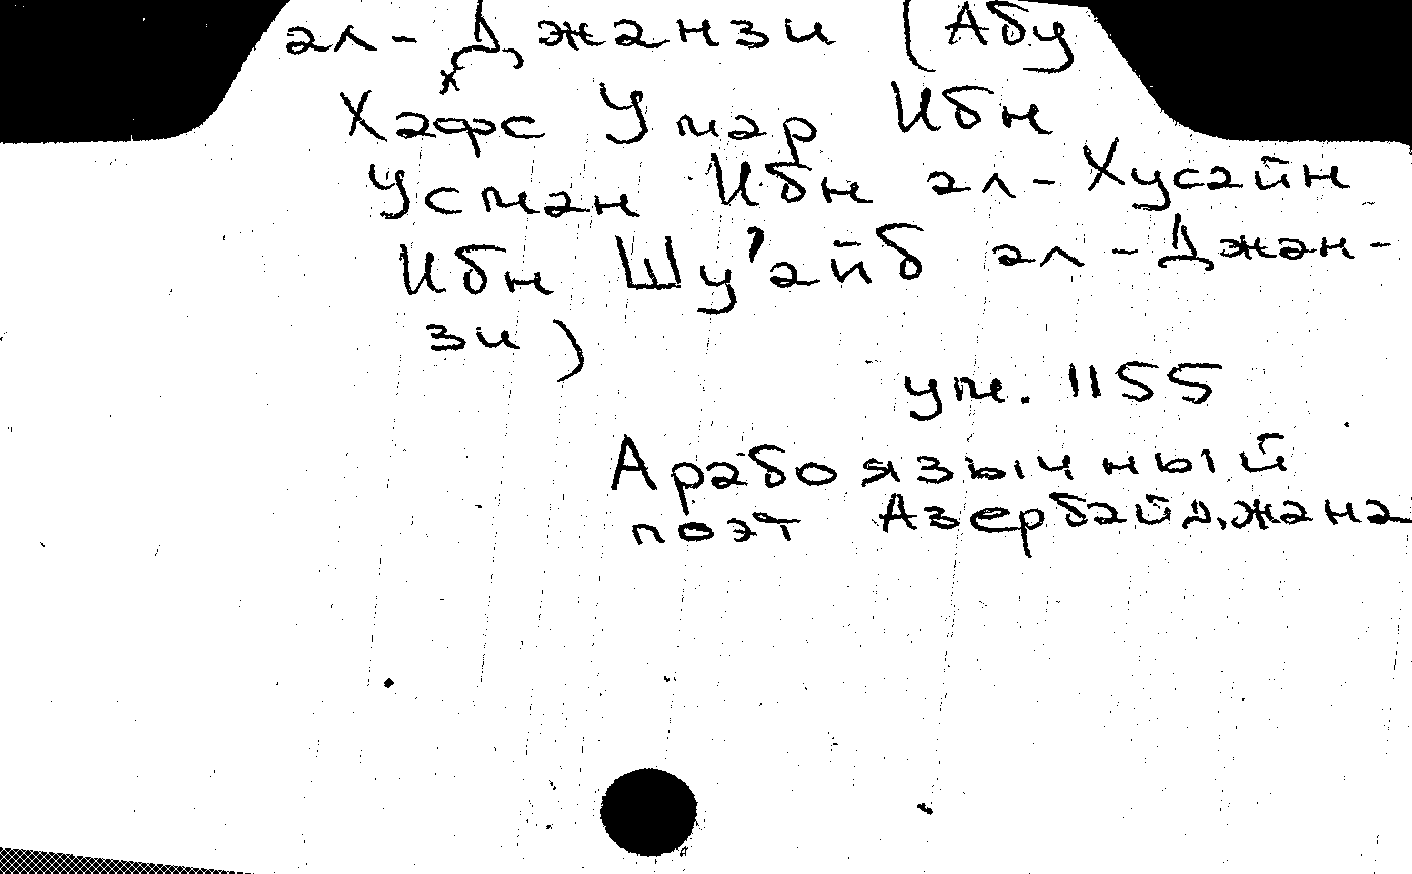 ал-Джанзи (Абу
Хафс Умар Ибн
Усман Ибн ал-Хусайн
Ибн Шу'айб ал-Джан-
зи)
ум. 1155
Арабоязычный
поэт Азербайджана